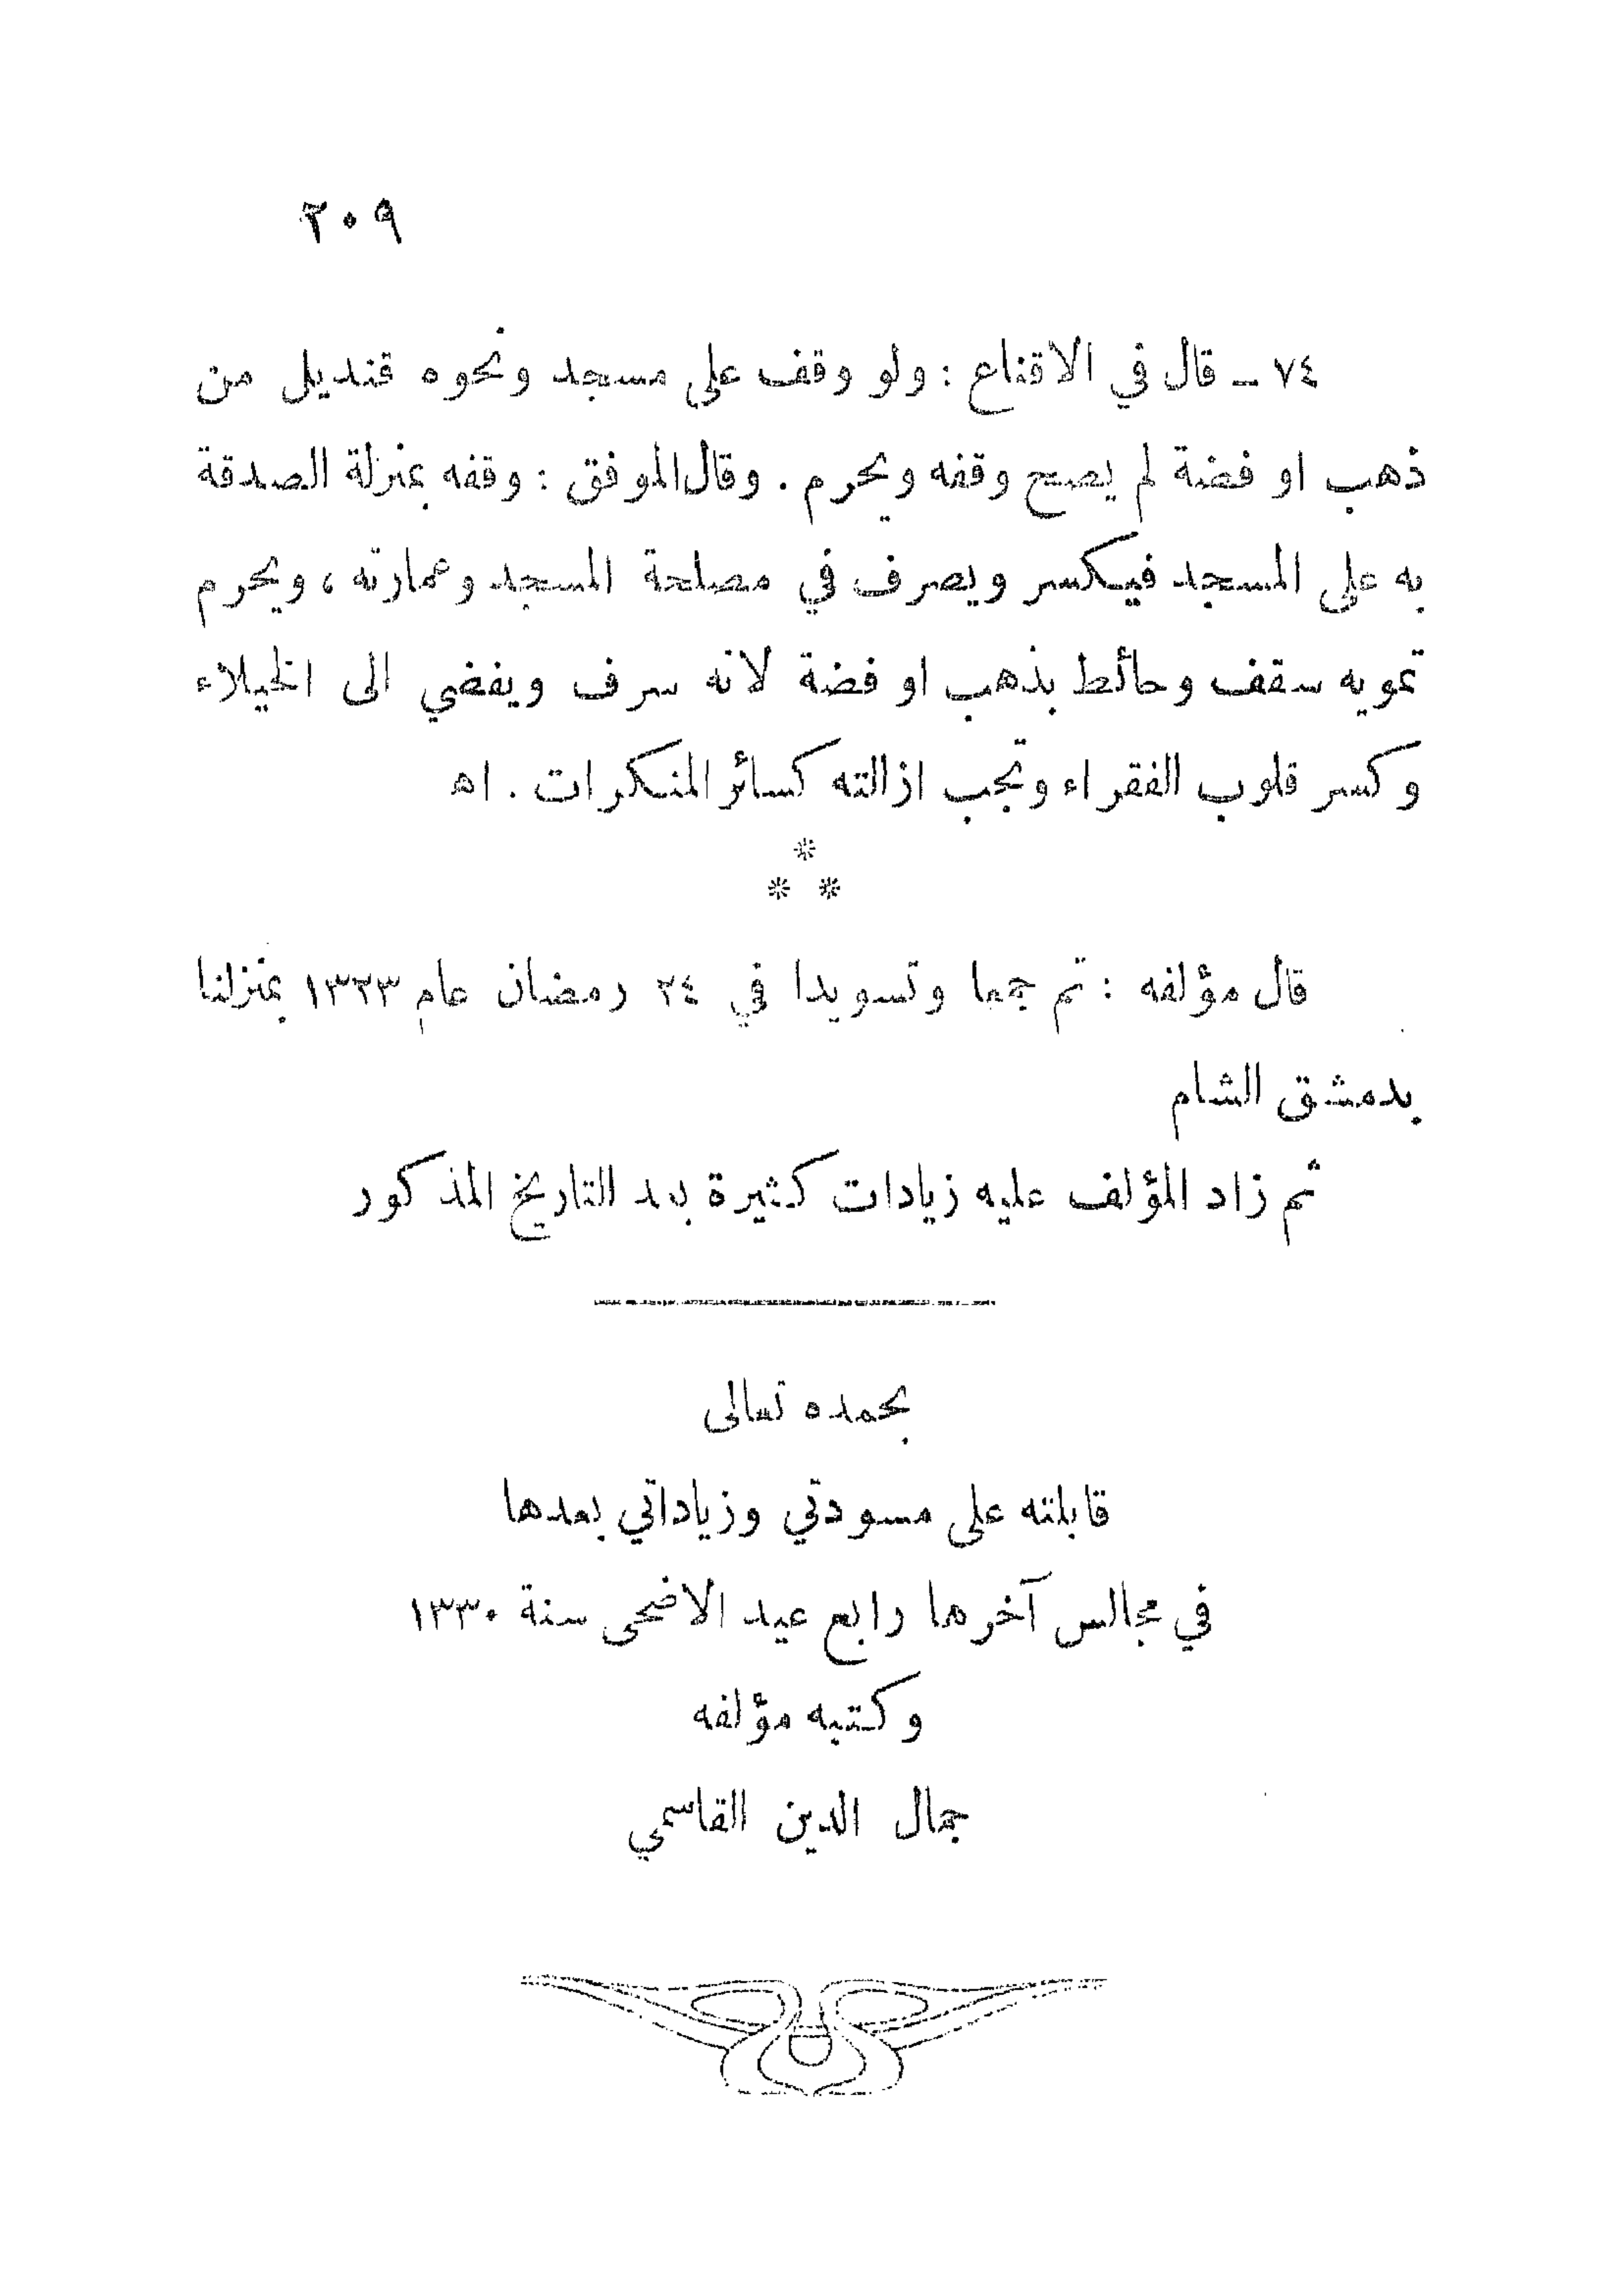 ٢٠٩
٧٤ ــ قال في الاقناع : ولو وقف على مسجد ونحوه قنديل من
ذهب او فضة لم يصح وقفه ويحرم . وقال الموفق : وقفه بمنزلة الصدقة
به على المسجد فيكسر ويصرف في مصلحة المسجد وعمارته ، ويحرم
تمويه سقف وحائط بذهب او فضة لانه سرف ويفضي الى الخيلاء
وكسر قلوب الفقراء وتجب ازالته كسائر المنكرات . اهـ
*
* *
قال مؤلفه : تم جمعا وتسويدا في ٢٤ رمضان عام ١٣٢٣ بمنزلنا
بدمشق الشام
ثم زاد المؤلف عليه زيادات كثيرة بعد التاريخ المذكور
بحمده تعالى
قابلته على مسودتي وزياداتي بعدها
في مجالس آخرها رابع عيد الاضحى سنة ١٣٣٠
وكتبه مؤلفه
جمال الدين القاسمي